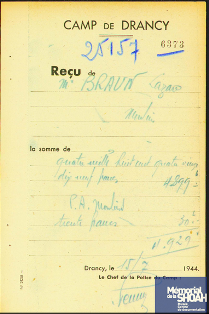 CAMP DE DRANCY
25157 6373
Reçu de
Mr BRAUN Lazare
la somme de
quatre mille huit cent quatre vingt
dix neuf francs 4899
P.A.
trente francs 30
4.929
Drancy, le 15/7 1944.
Le Chef de la Police du Camp
Mémorial
de la
SHOAH